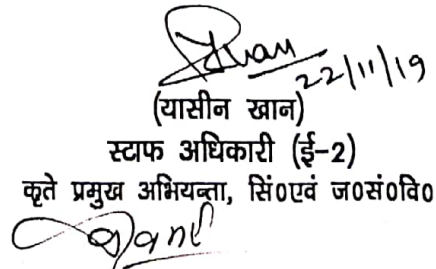 22/11/19
(यासीन खान)
स्टाफ अधिकारी (ई-2)
कृते प्रमुख अभियन्ता, सिं०एवं ज०सं०वि०